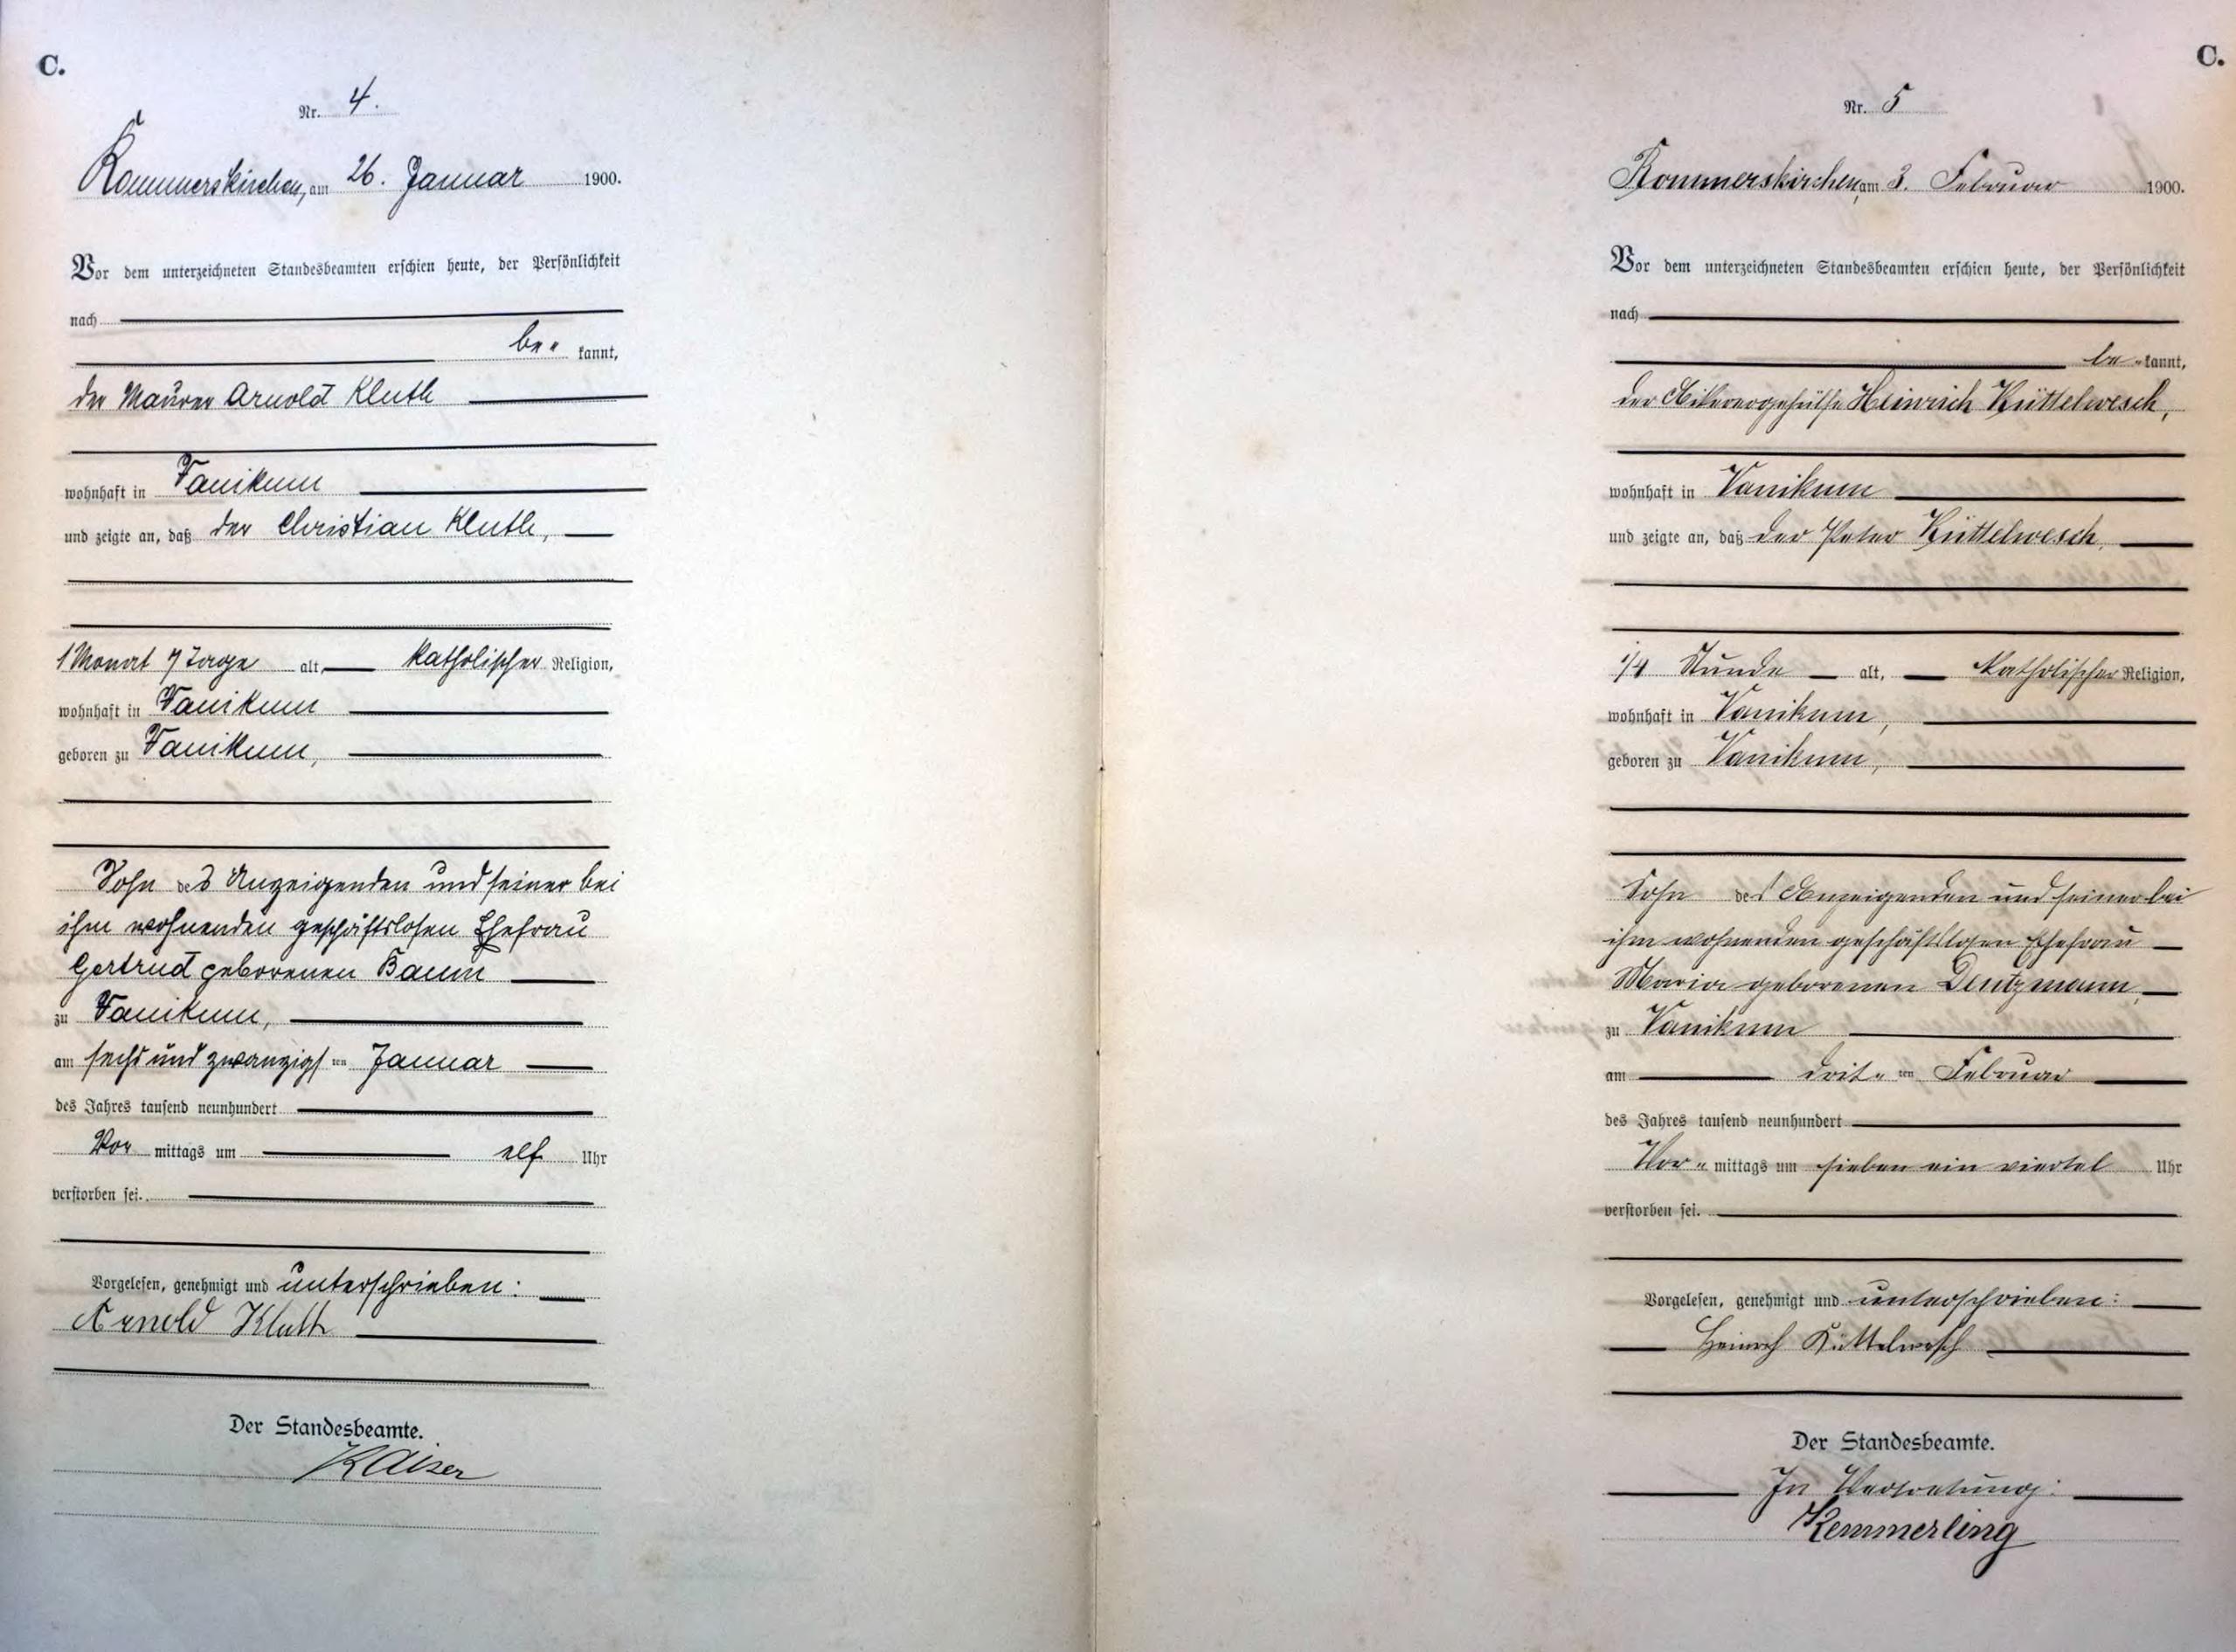 C.
Nr. 4.
Kommerskirchen, am 26. Januar 1900.
Vor dem unterzeichneten Standesbeamten erschien heute, der Persönlichkeit
nach
be= kannt,
der Maurer Arnold Kluth
wohnhaft in Vanikum
und zeigte an, daß der Christian Kluth,
1 Monat 7 Tage alt, katholischer Religion,
wohnhaft in Vanikum
geboren zu Vanikum,
Sohn des Anzeigenden und seiner bei
ihm wohnenden geschäftslosen Ehefrau
Gertrud geborenen Baum
zu Vanikum,
am sechs und zwanzigsten Januar
des Jahres tausend neunhundert
Vor mittags um elf Uhr
verstorben sei.
Vorgelesen, genehmigt und unterschrieben:
Arnold Kluth
Der Standesbeamte.
Kaiser
C.
Nr. 5
Rommerskirchen, am 3. Februar 1900.
Vor dem unterzeichneten Standesbeamten erschien heute, der Persönlichkeit
nach
be= kannt,
der Heinrich Küttelwesch,
wohnhaft in Vanikum
und zeigte an, daß der Peter Küttelwesch,
1/4 Stunde alt, katholischer Religion,
wohnhaft in Vanikum,
geboren zu Vanikum,
Sohn des Anzeigenden und seiner bei
ihm wohnenden geschäftslosen Ehefrau
Maria geborenen Deutzmann,
zu Vanikum
am drit= ten Februar
des Jahres tausend neunhundert
Vor= mittags um sieben ein viertel Uhr
verstorben sei.
Vorgelesen, genehmigt und unterschrieben:
Heinrich Küttelwesch
Der Standesbeamte.
In Vertretung:
Kemmerling